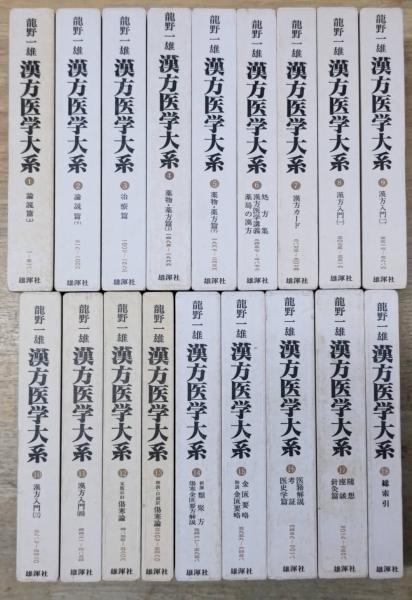 龍野一雄
漢方医学大系
1
論説篇(上)
雄渾社
龍野一雄
漢方医学大系
2
論説篇(下)
雄渾社
龍野一雄
漢方医学大系
3
治療篇
雄渾社
龍野一雄
漢方医学大系
4
薬物・薬方篇(上)
雄渾社
龍野一雄
漢方医学大系
5
薬物・薬方篇(下)
雄渾社
龍野一雄
漢方医学大系
6
処方集
漢方医学講義
薬局の漢方
雄渾社
龍野一雄
漢方医学大系
7
漢方カード
雄渾社
龍野一雄
漢方医学大系
8
漢方入門(一)
雄渾社
龍野一雄
漢方医学大系
9
漢方入門(二)
雄渾社
龍野一雄
漢方医学大系
10
漢方入門(三)
雄渾社
龍野一雄
漢方医学大系
11
漢方入門(四)
雄渾社
龍野一雄
漢方医学大系
12
傷寒論
雄渾社
龍野一雄
漢方医学大系
13
傷寒論
雄渾社
龍野一雄
漢方医学大系
14
新撰類聚方
傷寒金匱要方解説
雄渾社
龍野一雄
漢方医学大系
15
金匱要略
新訳金匱要略
雄渾社
龍野一雄
漢方医学大系
16
医籍解説
考証
医史学篇
雄渾社
龍野一雄
漢方医学大系
17
随想
座談
針灸篇
雄渾社
龍野一雄
漢方医学大系
18
総索引
雄渾社